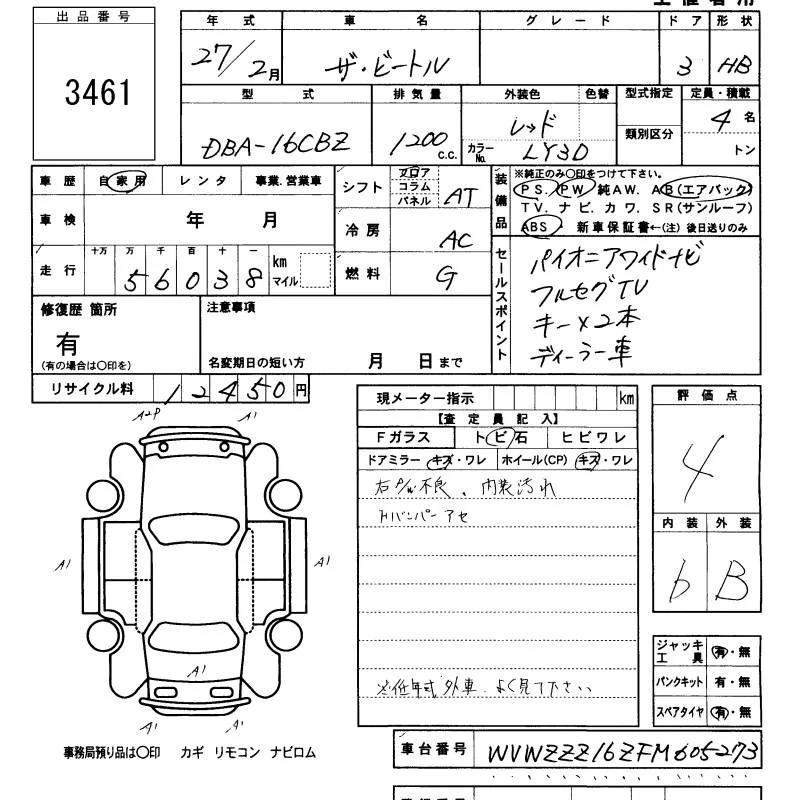 出品番号
3461
年式 車名 グレード ドア 形状
27/2月 ザ・ビートル 3 HB
型式 排気量 外装色 色替 型式指定 定員・積載
DBA-16CBZ 1200 C.C. レッド 4名
カラーNo. LY3D 類別区分 トン
車歴 自家用 レンタ 事業.営業車
シフト フロア コラム パネル AT
装備品 ※純正のみ〇印をつけて下さい。
PS. PW 純AW. AB(エアバック)
TV. ナビ. カワ. SR(サンルーフ)
ABS. 新車保証書←(注)後日送りのみ
車検 年 月
冷房 AC
走行 十万 万 千 百 十 一
56038 km マイル
燃料 G
セールスポイント
パイオニアワイドナビ
フルセグTV
キー×2本
ディーラー車
修復歴 箇所
有
(有の場合は〇印を)
注意事項
名変期日の短い方 月 日まで
リサイクル料 12450円
現メーター指示 km
【査定員記入】
Fガラス トビ石 ヒビワレ
ドアミラー キズ・ワレ ホイール(CP) キズ・ワレ
右P/W不良、内装汚れ
バンパーアセ
※低年式外車、よく見て下さい
評価点
4
内装 外装
b B
ジャッキ工具 有・無
パンクキット 有・無
スペアタイヤ 有・無
A2P A1
A1 A1
A1
A1 A1
事務局預り品は〇印 カギ リモコン ナビロム
車台番号 WVWZZZ16ZFM605273